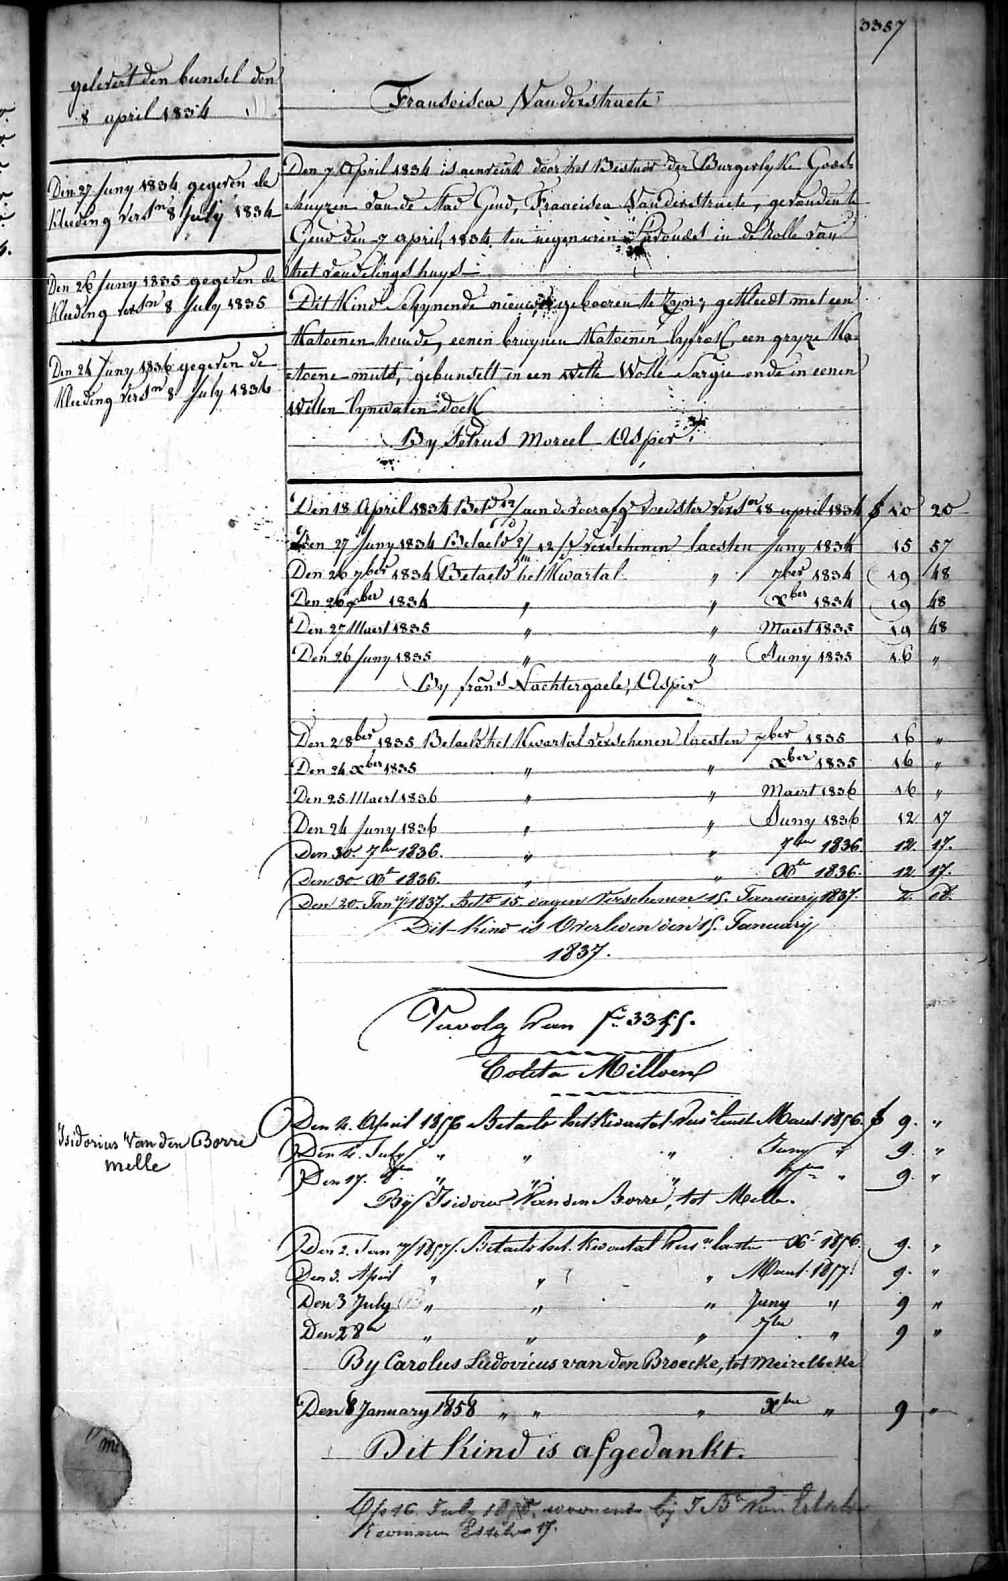 3357
gelevert den bunsel den
8 april 1834
Den 27 Juny 1834 gegeven de
kleeding vers.n 8 July 1834
Den 26 Juny 1835 gegeven de
kleeding vers.n 8 July 1835
Den 24 Juny 1836 gegeven de
kleeding vers.n 8 July 1836
Franscisca Vanderstraete
Den 7 April 1834 is aenveird door het Bestuer der Burgerlyke Gods
huyzen van de Stad Gend, Francisca Vanderstraete, gevonden te
Gend den 7 april 1834 ten negen uren s'avonds in de Rolle van
het vondelings huys
Dit Kind Schynende nieuw geboren te zyn, gekleedt met een
Katoenen hemde, eenen bruynen Katoenen lyfrok, een gryze Ka-
toene muts, gebunselt in een Witte Wolle Sargie ende in eenen
Witten lynwaten doek
By Petrus Moreel Asper
Den 18 April 1834 Bet.d aen de voorafg.e voedster vers.n 18 april 1834 f 10 20
Den 27 Juny 1834 Betaeld verschenen laesten Juny 1834 15 57
Den 26 7ber 1834 Betaeld het Kwartal " 7ber 1834 19 48
Den 26 xber 1834 " " xber 1834 19 48
Den 27 Maert 1835 " " Maert 1835 19 48
Den 26 Juny 1835 " " Juny 1835 16 "
By frans Nachtergaele, Asper
Den 2 8ber 1835 Betaeld het Kwartal verschenen laesten 7ber 1835 16 "
Den 24 xber 1835 " " xber 1835 16 "
Den 25 Maert 1836 " " Maert 1836 16 "
Den 24 Juny 1836 " " Juny 1836 12 17
Den 30. 7ber 1836. " " 7ber 1836 12. 17.
Den 30 Xb 1836. " " Xber 1836. 12. 17.
Den 20 Jan.y 1837. Bet.d 15 dagen Verschenen 15. January 1837. 2. 01.
Dit Kind is Overleden den 15. January
1837.
Vervolg Van f.o 3355.
Coleta Milloen
Isidorius Van den Borre
Melle
Den 4. April 1856 Betaeld het Kwartal Vers.n laest Maert 1856. f 9. "
Den 4. July " " " Juny " 9. "
Den 17. 8ber " " 7ber " 9. "
By Isidoor Van den Borre, tot Melle.
Den 2. Jan.y 1857. Betaeld het Kwartal Vers.n laeste Xb 1856. 9. "
Den 3. April " " " Maert 1857. 9. "
Den 3 July " " " Juny " 9 "
Den 2 8ber " " " 7ber " 9 "
By Carolus Ludovicus van den Broecke, tot Meirelbeke
Den 8 January 1858 " " " xber " 9 "
Dit Kind is afgedankt.
Op 16 July by J. B.te Van